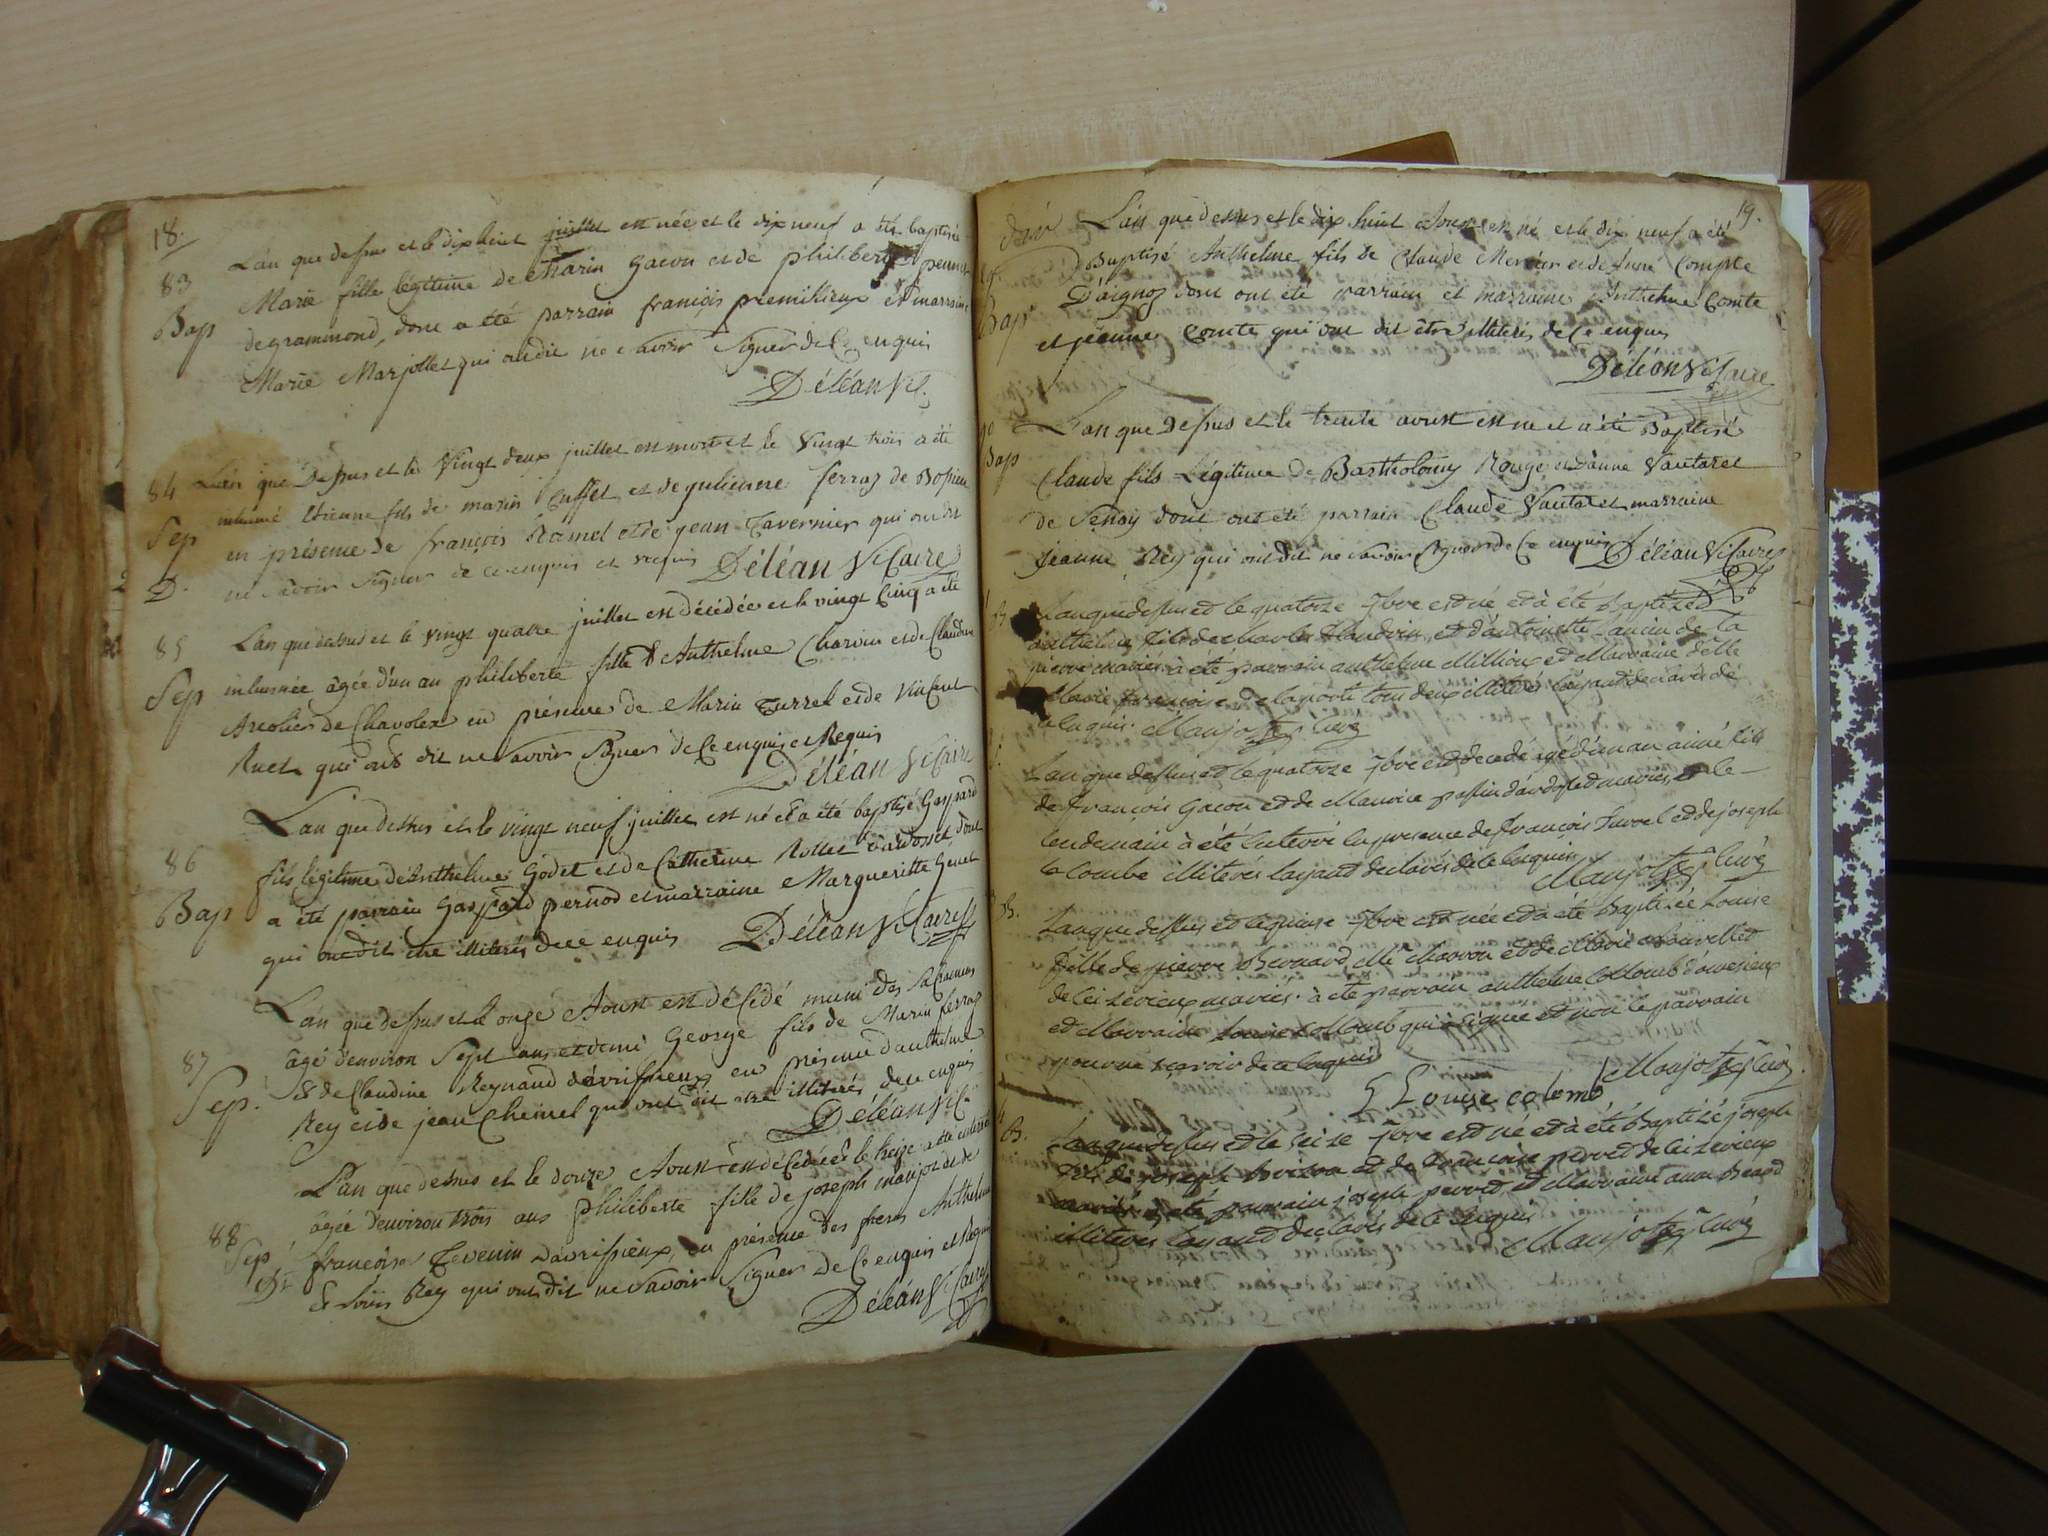 18.
83
Bap
L'an que dessus et le dix huit juillet est née et le dix neuf a été baptisée
Marie fille légitime de Marin Gacon et de philiberte
de grammond, dont a été parrain françois premilieux et marraine
Marie Marjollet qui ont dit ne savoir signer de ce enquis
Déléan Vic.
84
Sep
D.
L'an que dessus et le vingt deux juillet est mort et le vingt trois a été
inhumé Etienne fils de marin Cuffet et de julienne ferraz de Bossieu
en présence de françois Ramel et de jean Tavernier qui ont dit
ne savoir signer de ce enquis et requis Déléan Vicaire
85
Sep
L'an que dessus et le vingt quatre juillet est décédée et le vingt cinq a été
inhumée âgée d'un an philiberte fille d'Anthelme Charvin et de Claudine
de Chavolex en présence de Marin Turrel et de Vincent
Ruet qui ont dit ne savoir signer de ce enquis et Requis
Déléan Vicaire
86
Bap
L'an que dessus et le vingt neuf juillet est né et a été baptisé Gaspard
fils légitime d'Anthelme Godet et de Catherine Rollet d'ardosset, dont
a été parrain Gaspard pernod et marraine Margueritte Genet
qui ont dit être illiterés de ce enquis Déléan Vicaire
87
Sep.
L'an que dessus et le onze Aoust est décédé muni des sacremens
âgé d'environ sept ans et demi George fils de Marin ferraz
& de Claudine Reynaud d'avrissieux en présence d'anthelme
Rey et de jean Cheinel qui ont dit être illiterés de ce enquis
Déléan Vic.
88
Sep
L'an que dessus et le douze Aoust est décédée et le treize a été enterrée
âgée d'environ trois ans philiberte fille de joseph manjot et de
françoise Tevenin d'avrissieux, en présence des freres Anthelme
& Loüis Rey qui ont dit ne savoir signer de ce enquis et Requis
Déléan Vicaire
19.
L'an que dessus et le dix huit Aoust est né et le dix neuf a été
Baptisé Anthelme fils de Claude Mercier et de Compte
D'aignoz dont ont été parrain et marraine Anthelme Comte
et jeanne Comte qui ont dit être illiterés de ce enquis
Déléan Vicaire
Bap
L'an que dessus et le trente aoust est né et a été Baptisé
Claude fils Légitime de Bartholomy Rouge et d'anne Vautaret
de Senoy dont ont été parrain Claude Vautaret marraine
Jeanne Rey qui ont dit ne savoir signer de ce enquis Déléan Vicaire
L'an que dessus et le quatorze 7bre est né et à été baptizé
anthelme fils de charles et d'antoinette ancin de la
mariés à été parrain anthelme Millioux et Marraine delle
Marie françoise de laporte tous deux illiterés layant déclaré de
ce enquis. Manjot Curé
L'an que dessus et le quatorze 7bre est decedé agé d'un an aimé fils
de françois Gacon et de Maurice passin d'ardosset mariés, et le
lendemain à été enterré en presence de françois Turrel et de joseph
la Combe illiterés layant declarés de ce enquis Manjot Curé
B.
L'an que dessus et le quinze 7bre est née et à été baptizée Louise
fille de pierre Bernard Me Marron et de Marie
de Ceizerieux mariés. à été parrain anthelme Collomb d'
et Marraine Louise Collomb qui à signée et non le parrain
pour ne scavoir de ce enquis
Louise colomb Manjot Curé.
B.
L'an que dessus et le seize 7bre est né et à été Baptizé joseph
fils de joseph et de françoise perret de Ceizerieux
mariés à été parrain joseph perret et Marraine
illiterés layant declarés de ce enquis Manjot Curé